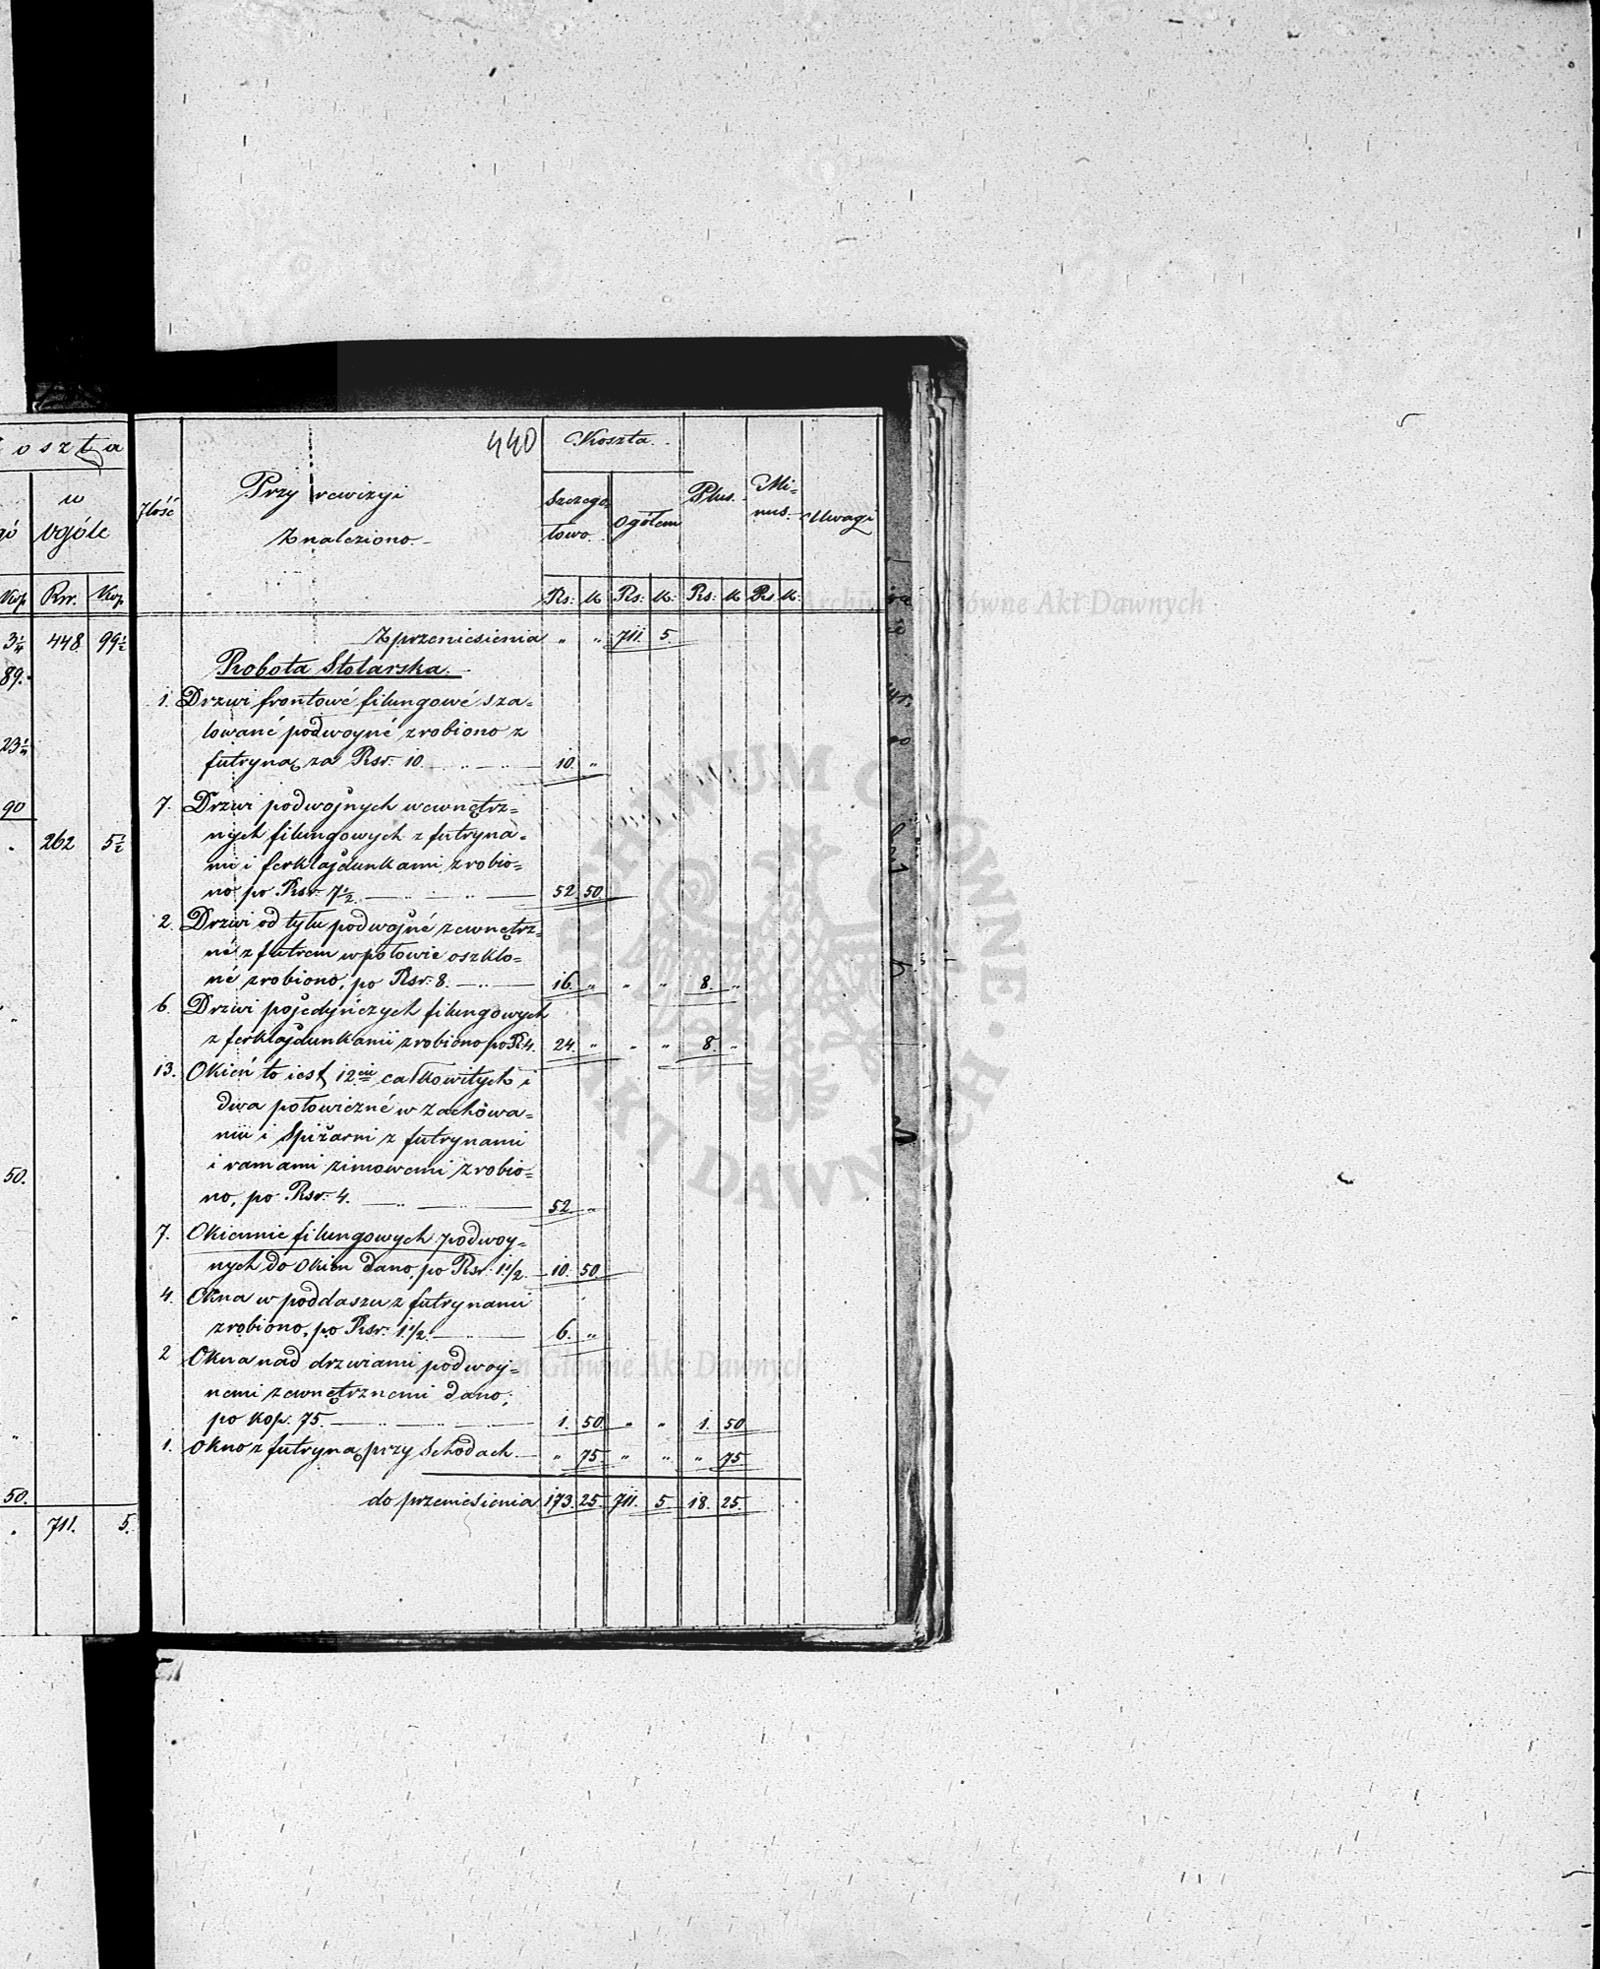 oszta
w
ogóle
Kop Rsr. Kop
3¼ 448 99½
89.
23¼
90
262 5½
50.
50.
711. 5.
440
Ilość
Przy rewizyi
Znaleziono.
Koszta.
Szczegó-
łowo.
Ogółem
Plus.
Mi-
nus.
Uwagi
Rs: K Rs: K: Rs: K Rs K:
Z przeniesienia " " 711 5.
Robota Stolarska.
1. Drzwi frontowé filungowé sza-
lowané podwoyné zrobiono z
futryną za Rsr: 10. 10. "
7. Drzwi podwojnych wewnętrz-
nych filungowych z futryna-
mi i ferklajdunkami zrobio-
no po Rsr. 7½. 52. 50.
2. Drzwi od tyłu podwojné zewnętrz-
né z futrem wpołowie oszklo-
né zrobiono, po Rsr: 8. 16. " " " 8. "
6. Drzwi pojedyńczych filungowych
z ferklajdunkami zrobiono po R: 4. 24. " " " 8. "
13. Okień to iest 12cie całkowitych i
dwa połowiczné w zachowa-
niu i Spiżarni z futrynami
i ramami zimowemi zrobio-
no, po Rsr. 4. 52. "
7. Okiennic filungowych podwoy-
nych do okien dano, po Rsr. 1½. 10. 50.
4. Okna w poddaszu z futrynami
zrobiono, po Rsr. 1½. 6. "
2 Okna nad drzwiami podwoy-
nemi zewnętrznemi dano,
po Kop. 75. 1. 50. " " 1. 50
1. Okno z futryną przy Schodach " 75. " " " 75.
do przeniesienia 173. 25. 711. 5. 18. 25.
Archiwum Główne Akt Dawnych
ARCHIWUM GŁÓWNE AKT DAWNYCH
Archiwum Główne Akt Dawnych